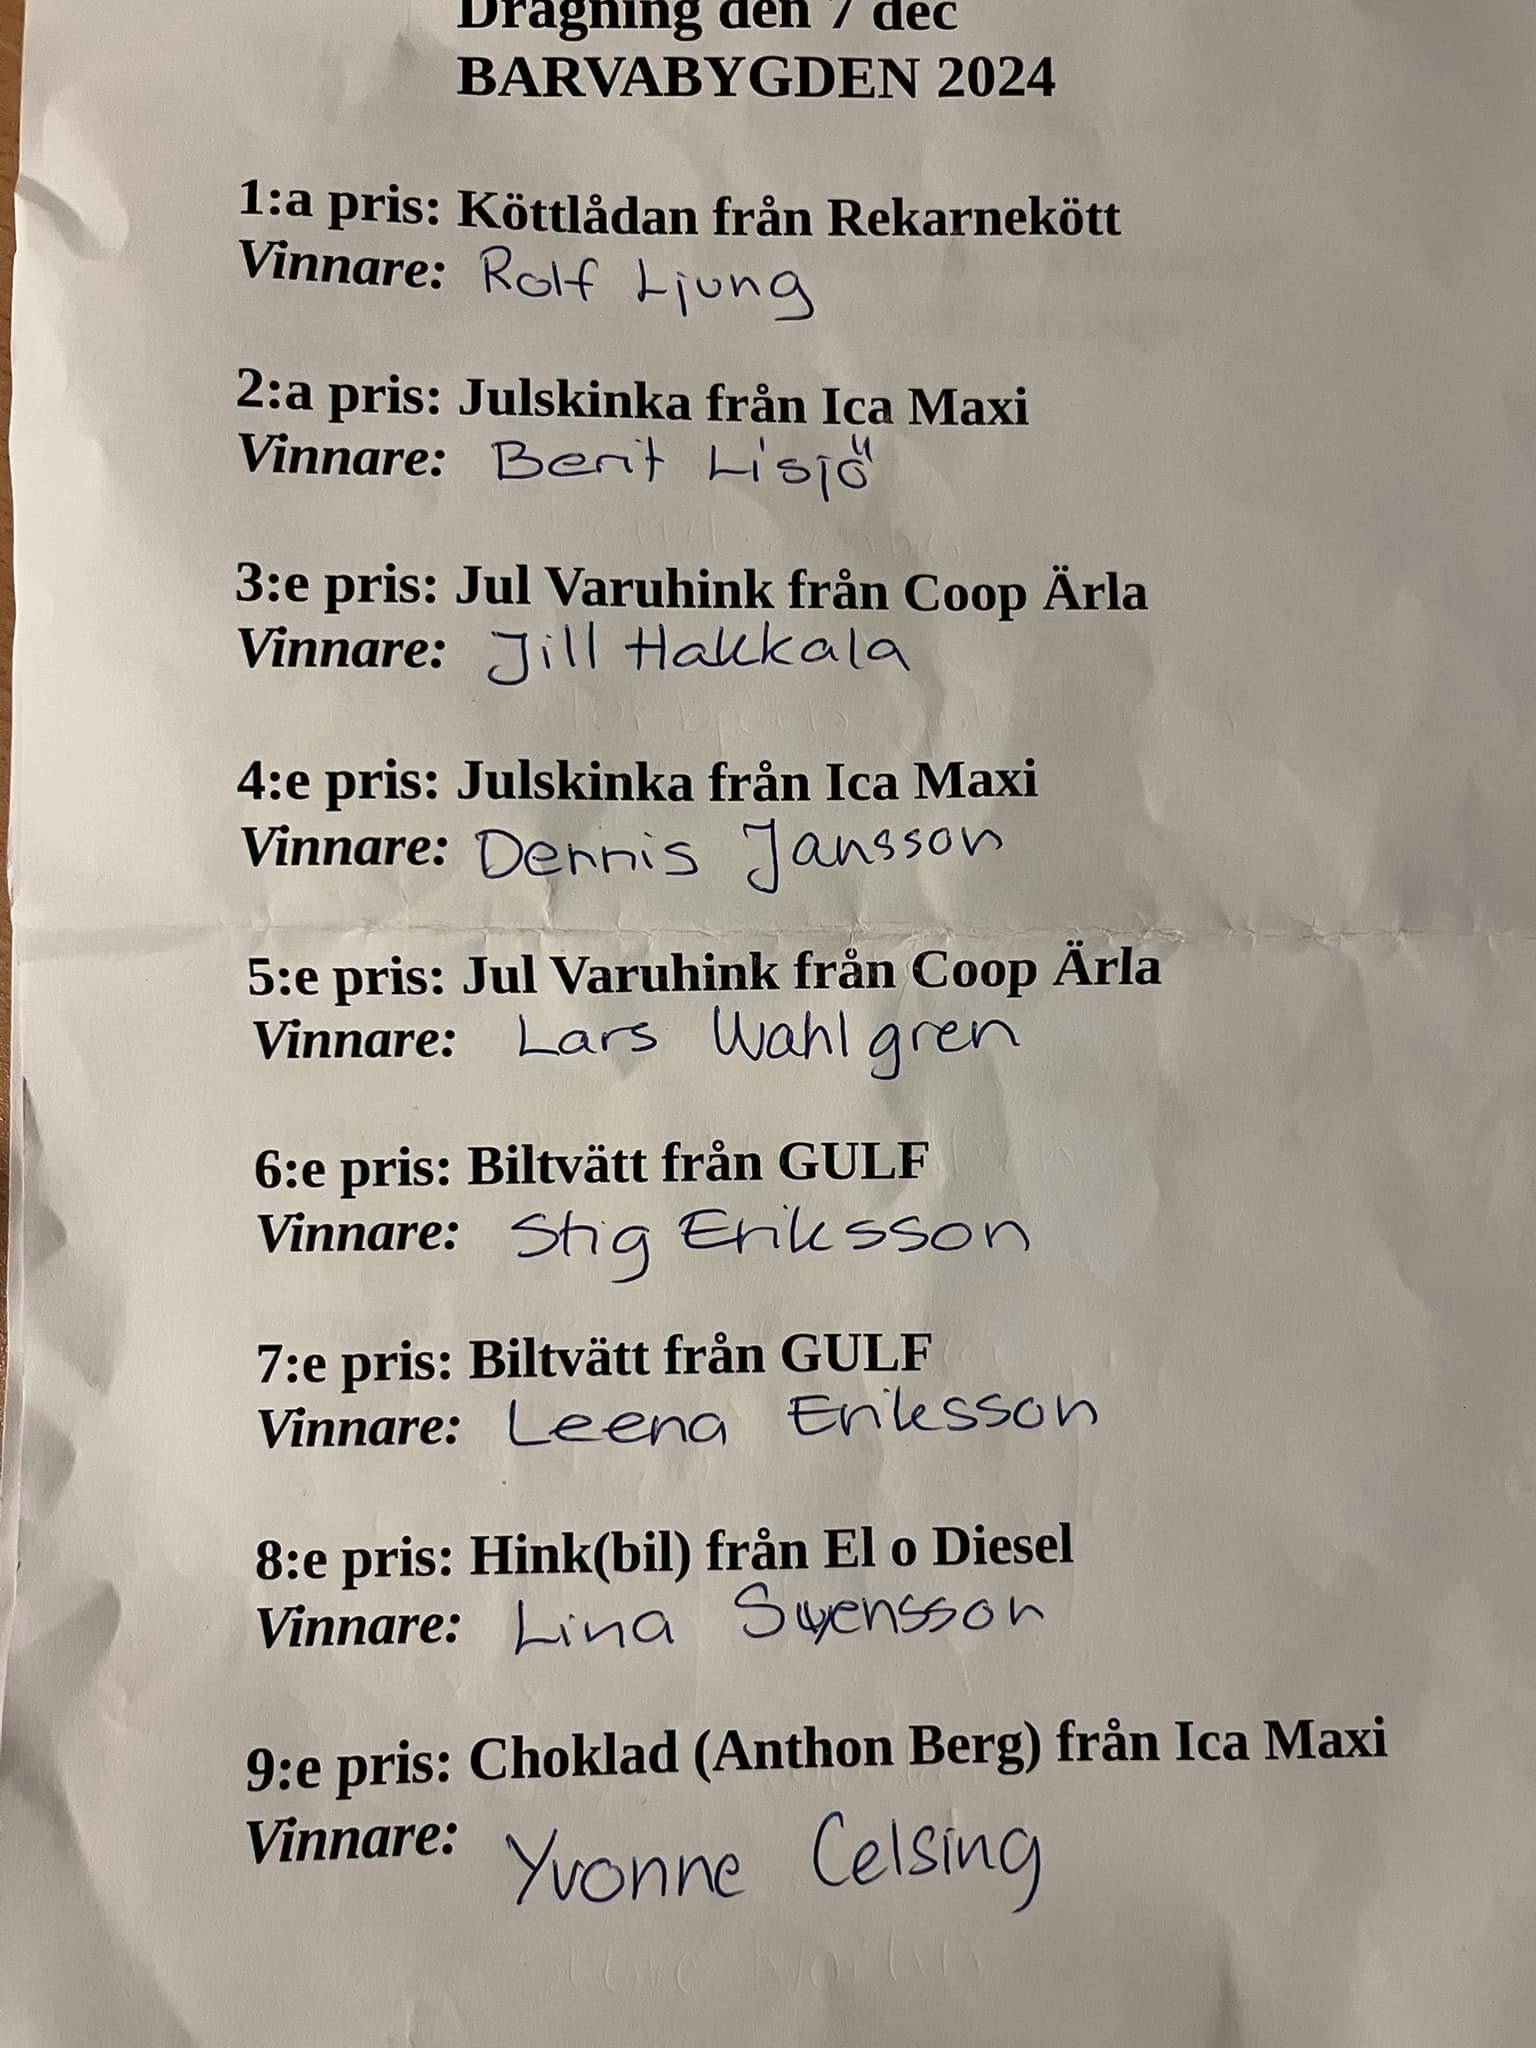 Dragning den 7 dec
BARVABYGDEN 2024
1:a pris: Köttlådan från Rekarnekött
Vinnare: Rolf Ljung
2:a pris: Julskinka från Ica Maxi
Vinnare: Berit Lisjö
3:e pris: Jul Varuhink från Coop Ärla
Vinnare: Jill Hakkala
4:e pris: Julskinka från Ica Maxi
Vinnare: Dennis Jansson
5:e pris: Jul Varuhink från Coop Ärla
Vinnare: Lars Wahlgren
6:e pris: Biltvätt från GULF
Vinnare: Stig Eriksson
7:e pris: Biltvätt från GULF
Vinnare: Leena Eriksson
8:e pris: Hink(bil) från El o Diesel
Vinnare: Lina Svensson
9:e pris: Choklad (Anthon Berg) från Ica Maxi
Vinnare: Yvonne Celsing